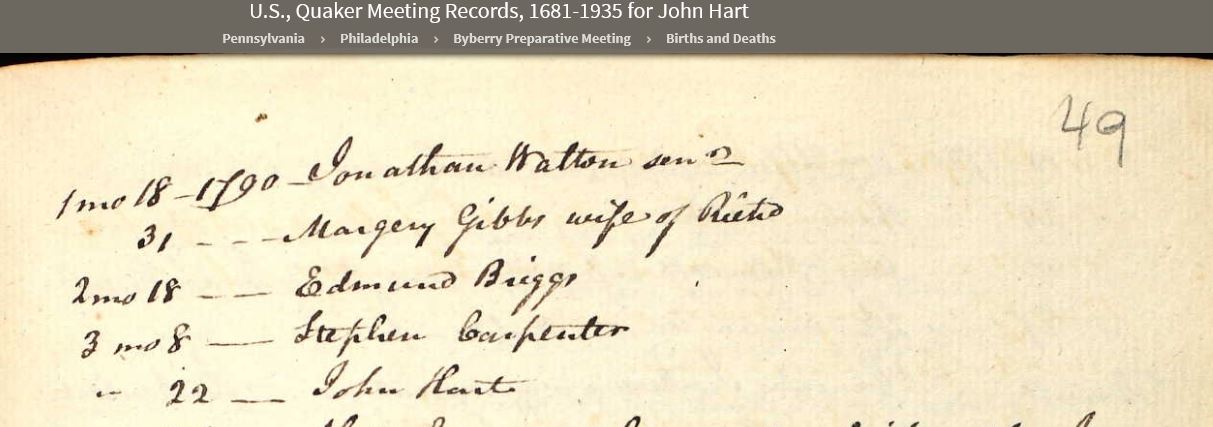 U.S., Quaker Meeting Records, 1681-1935 for John Hart
Pennsylvania › Philadelphia › Byberry Preparative Meeting › Births and Deaths
49
1mo 18-1790-Jonathan Walton senr
31 - - - Margery Gibbs wife of Richd
2mo 18 - - Edmund Briggs
3 mo 8 — Stephen Carpenter
" 22 — John Hart